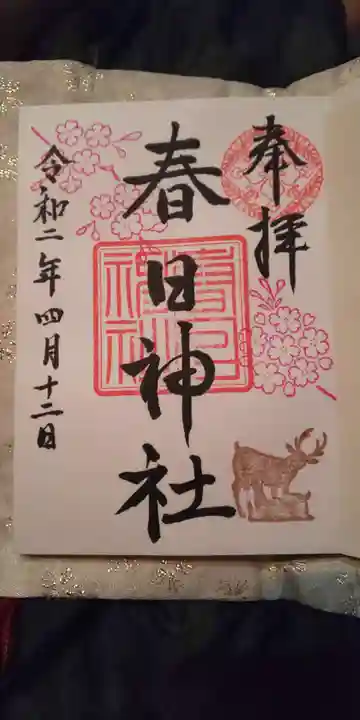 奉拝
春日神社
春日
神社
令和二年四月十二日